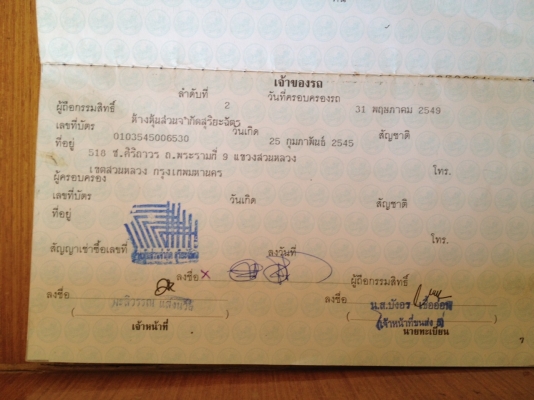 เจ้าของรถ
ลำดับที่ 2 วันที่ครอบครองรถ 31 พฤษภาคม 2549
ผู้ถือกรรมสิทธิ์ ห้างหุ้นส่วนจำกัดสุวิยะฉัตร
เลขที่บัตร 0103545006530 วันเกิด 25 กุมภาพันธ์ 2545 สัญชาติ
ที่อยู่ 518 ซ.ศิริถาวร ถ.พระรามที่ 9 แขวงสวนหลวง
เขตสวนหลวง กรุงเทพมหานคร โทร.
ผู้ครอบครอง
เลขที่บัตร วันเกิด สัญชาติ
ที่อยู่ โทร.
สัญญาเช่าซื้อเลขที่ ลงวันที่
ลงชื่อ x ผู้ถือกรรมสิทธิ์
ลงชื่อ ลงชื่อ
( ) น.ส.บังอร
เจ้าหน้าที่ เจ้าหน้าที่ขนส่ง
นายทะเบียน
7